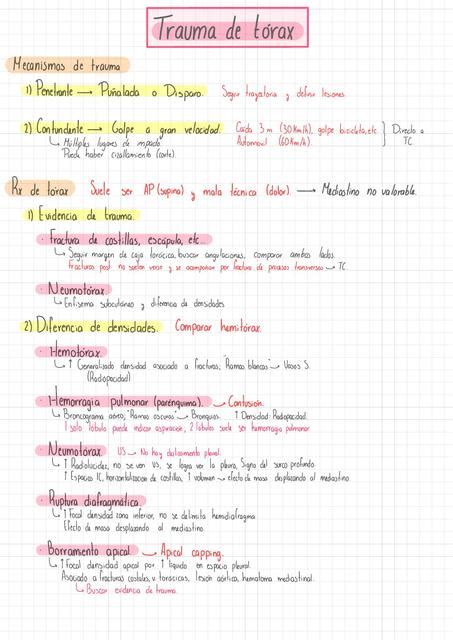 Trauma de tórax
Mecanismos de trauma
1) Penetrante → Puñalada o Disparo. Seguir trayectoria y definir lesiones.
2) Contundente → Golpe a gran velocidad. Caída 3 m (30Km/h), golpe bicicleta, etc. Directo a
↳ Múltiples lugares de impacto. Automóvil (60Km/h). TC
Puede haber cizallamiento (corte).
Rx de tórax Suele ser AP (supina) y mala técnica (dolor). → Mediastino no valorable.
1) Evidencia de trauma.
· Fractura de costillas, escápula, etc...
↳ Seguir margen de caja torácica, buscar angulaciones, comparar ambos lados.
Fracturas post. no suelen verse y se acompañan por fractura de procesos transversos → TC.
· Neumotórax
↳ Enfisema subcutáneo y diferencia de densidades
2) Diferencia de densidades. Comparar hemitórax.
· Hemotórax
↳ ↑ Generalizado densidad asociado a fracturas, "Ramas blancas" → Vasos S.
(Radiopacidad)
· Hemorragia pulmonar (parénquima). → Contusión.
↳ Broncograma aéreo, "Ramas oscuras" → Bronquios. ↑ Densidad. Radiopacidad.
1 solo lóbulo puede indicar aspiración, 2 lóbulos suele ser hemorragia pulmonar
· Neumotórax US → No hay deslizamiento pleural.
↳ ↑ Radiolucidez, no se ven VS, se logra ver la pleura, Signo del surco profundo.
↑ Espacios IC, horizontalización de costillas, ↑ volumen → Efecto de masa desplazando al mediastino
· Ruptura diafragmática.
↳ ↑ Focal densidad zona inferior, no se delimita hemidiafragma.
Efecto de masa desplazando al mediastino.
· Borramiento apical → Apical capping.
↳ ↑ Focal densidad apical por ↑ líquido en espacio pleural.
Asociado a fracturas costales, v. torácicas, lesión aórtica, hematoma mediastinal.
↳ Buscar evidencia de trauma.